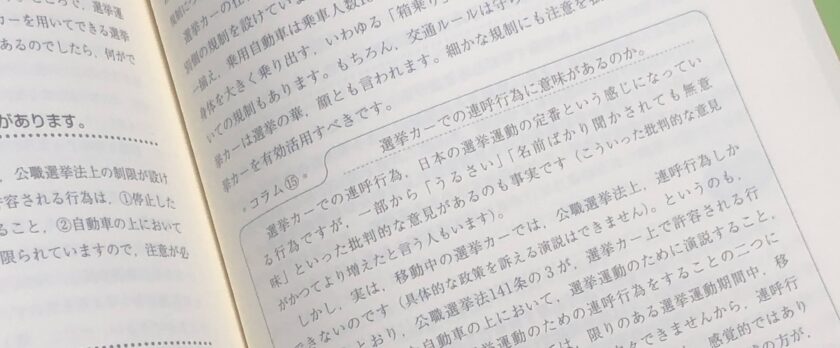 を用いてできる選挙
あるのでしたら，何がで
があります。
，公職選挙法上の制限が設け
許容される行為は，①停止した
ること，②自動車の上において
限られていますので，注意が必
選挙カーの仕
別個の規制を設けていま
一揃え，乗用自動車は乗車人数に
身体を大きく乗り出す，いわゆる「箱乗り」
いての規制もあります。もちろん，交通ルールは守ら
挙カーは選挙の華，顔とも言われます。細かな規制にも注意を
挙カーを有効活用すべきです。
コラム⑮
選挙カーでの連呼行為に意味があるのか。
選挙カーでの連呼行為，日本の選挙運動の定番という感じになってい
る行為ですが，一部から「うるさい」「名前ばかり聞かされても無意
味」といった批判的な意見があるのも事実です（こういった批判的な意見
がかつてより増えたと言う人もいます）。
しかし，実は，移動中の選挙カーでは，公職選挙法上，連呼行為しか
できないのです（具体的な政策を訴える演説はできません）。というのも，
とおり，公職選挙法141条の３が，選挙カー上で許容される行
自動車の上において，選挙運動のために演説すること，
選挙運動のための連呼行為をすることの二つに
では，限りのある選挙運動期間中，移
できませんから，連呼行
感覚的ではあり
の方が，